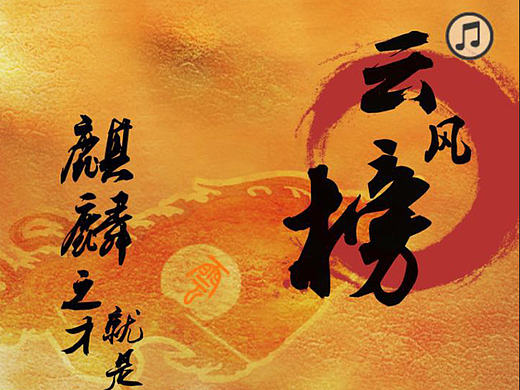 云风榜
麒麟之才
就是